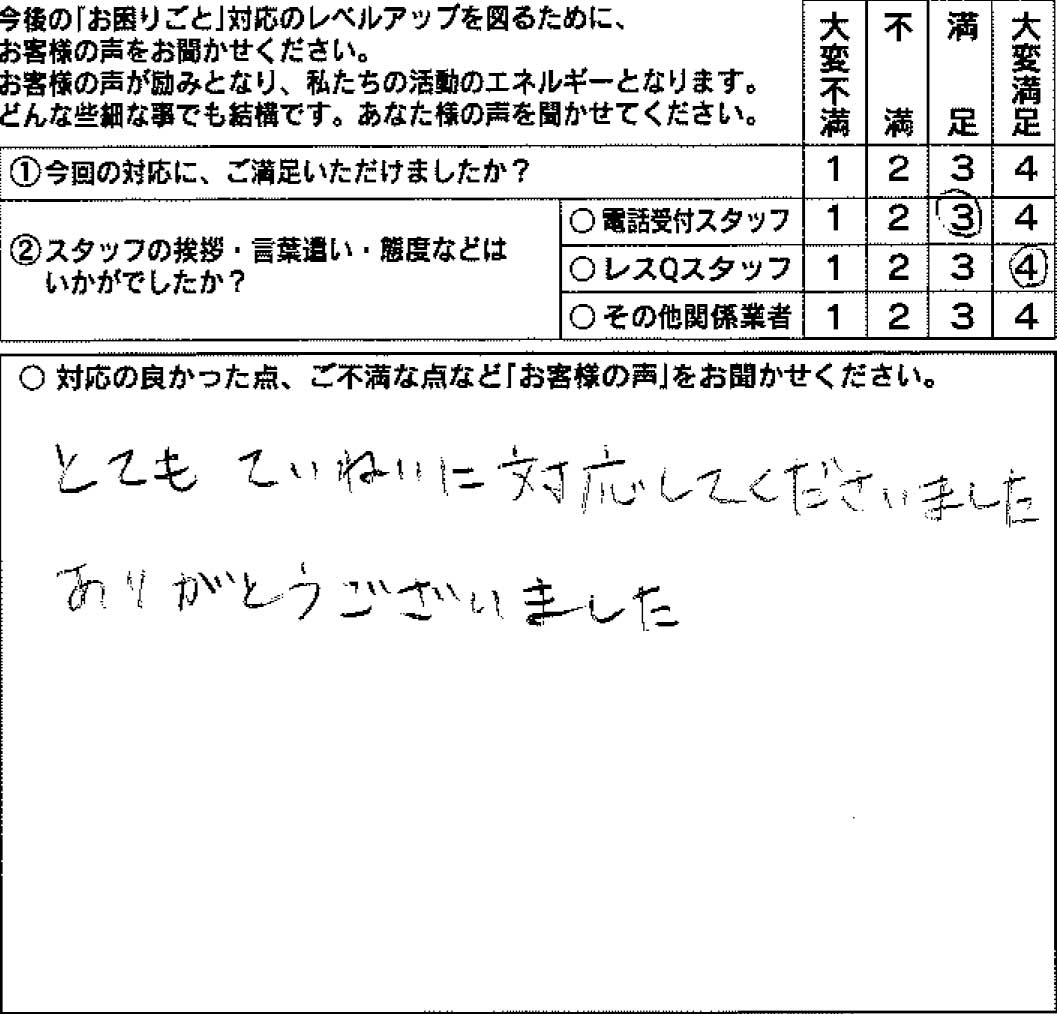 今後の「お困りごと」対応のレベルアップを図るために、
お客様の声をお聞かせください。
お客様の声が励みとなり、私たちの活動のエネルギーとなります。
どんな些細な事でも結構です。あなた様の声を聞かせてください。
大変不満 不満 満足 大変満足
①今回の対応に、ご満足いただけましたか？ 1 2 3 4
②スタッフの挨拶・言葉遣い・態度などは
いかがでしたか？
○電話受付スタッフ 1 2 3 4
○レスQスタッフ 1 2 3 4
○その他関係業者 1 2 3 4
○ 対応の良かった点、ご不満な点など「お客様の声」をお聞かせください。
とても ていねいに対応してくださいました
ありがとうございました